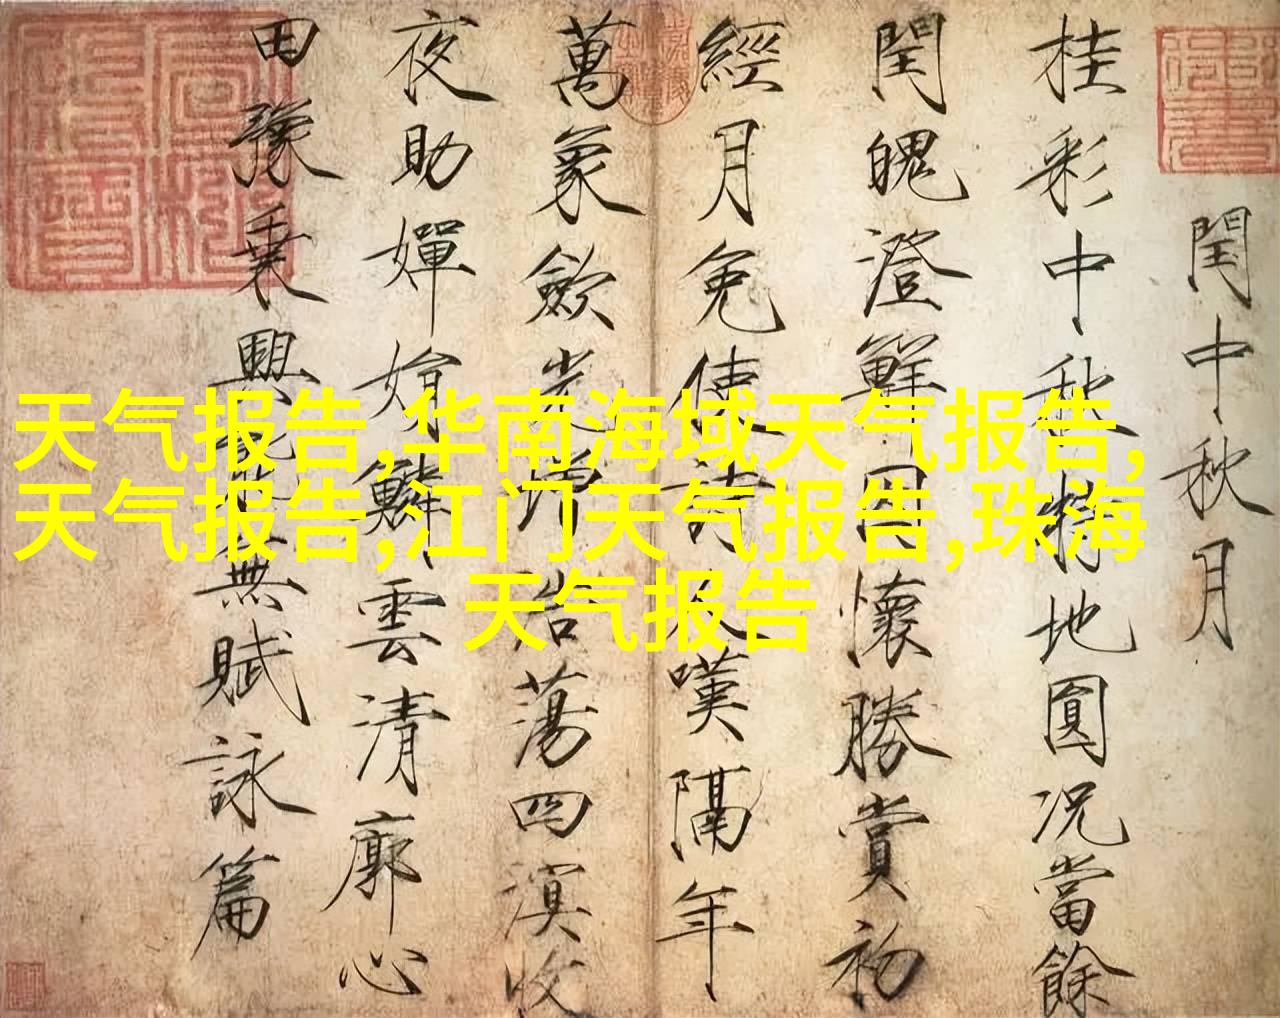 閏中秋月
桂彩中秋特地圓况當餘
閏魄澄鮮因懷勝賞初
經月免使詩人嘆隔年
萬象歛光增浩蕩四溟收
夜助嬋娟鱗雲清廓心
田豫乗興能無賦詠篇
天气报告,华南海域天气报告,
天气报告,江门天气报告,珠海
天气报告